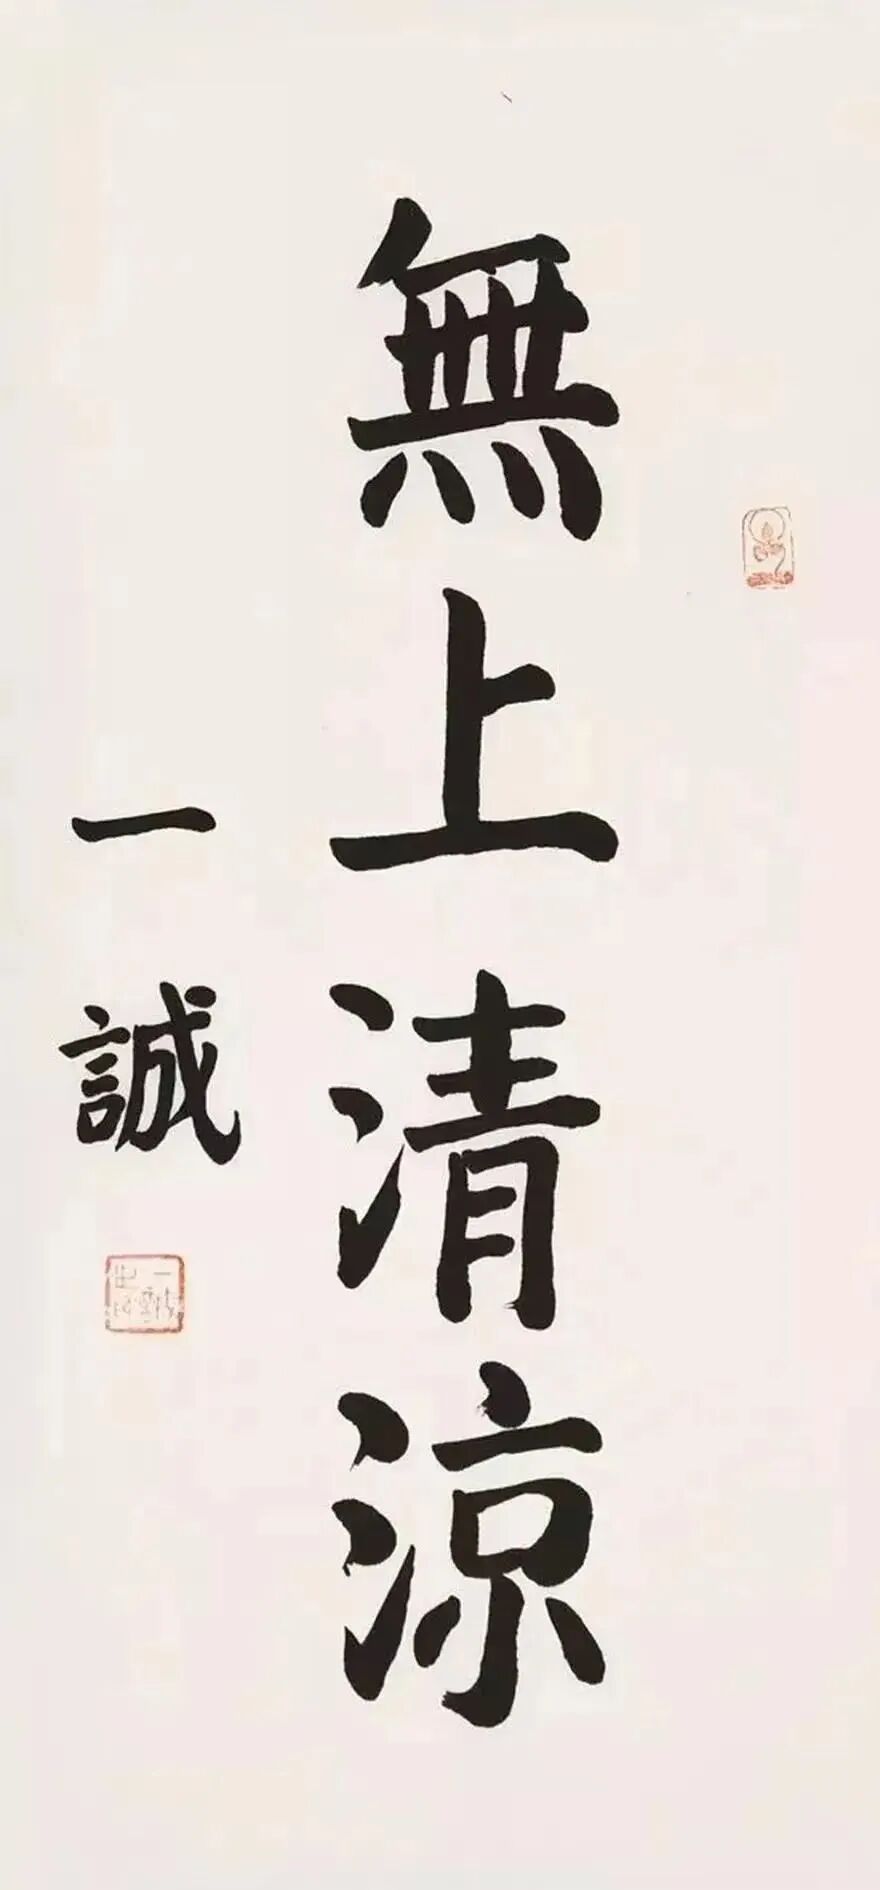 無上清涼
一誠